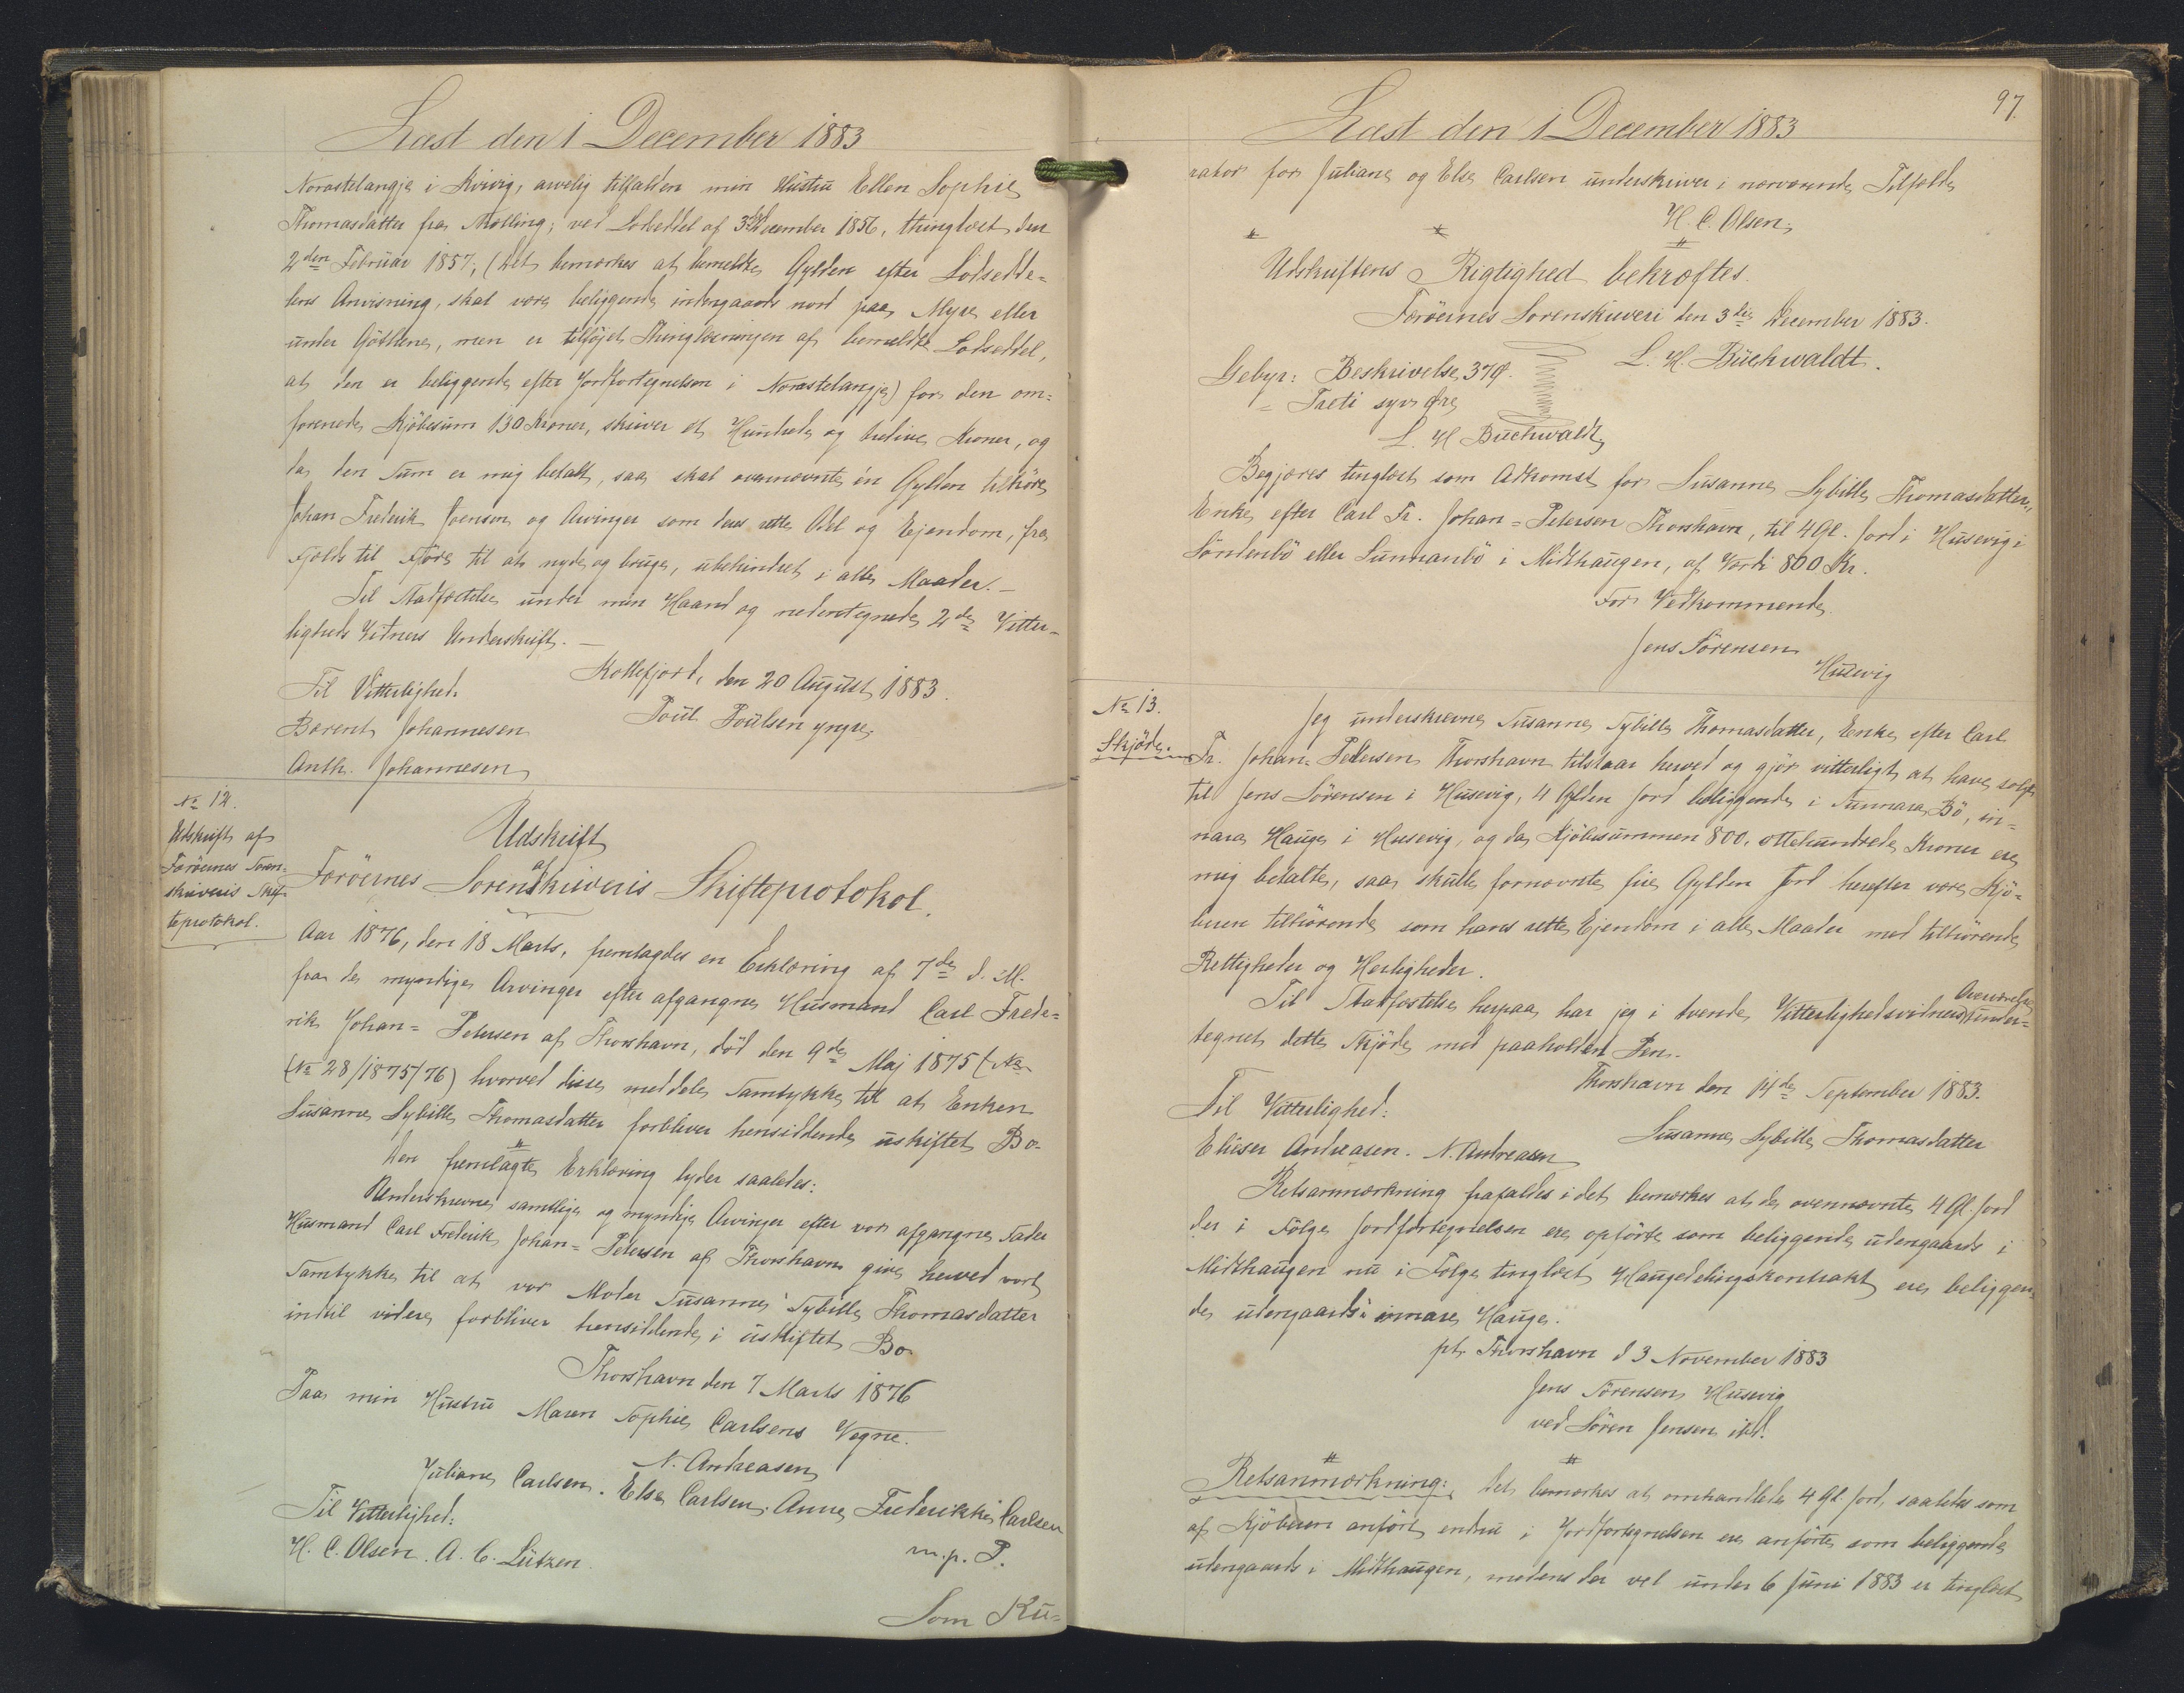 Læst den 1 December 1883
Norastelangje i Kvivig, arvelig tilfalden min Hustru Ellen Sophie
Thomasdatter fra Nolling, ved Lodseddel af 3die December 1856, thinglæst den
2den Februar 1857, (det bemærkes at bemeldte Gylden efter Lodsedde-
lens Anvisning, skal være beliggende indengaards nord paa Myre eller
under Göttene, men er tilföjet Thinglæsningen af bemeldte Lodseddel,
at den er beliggende efter Jordfortegnelsen i Norastelangje) for den om-
forenede Kjöbesum 130 Kroner, skriver et Hundrede og tredive Kroner, og
da den Sum er mig betalt, saa skal ovennævnte én Gylden tilhöre
Johan Frederik Joensen og Arvinger som deres rette Odel og Ejendom, fra
Fjelde til Fjöre til at nyde og bruge, ubehindret i alle Maader.-
Til Stadfæstelse under min Haand og nedentegnede 2de Vitter-
ligheds Vidners Underskrift.-
Kollefjord, den 20 August 1883.
Til Vitterlighed.
Poul Poulsen yngre.
Berent Johannesen
Anth. Johannesen
No 12.
Udskrift af
Færöernes Soren-
skriveris Skif-
teprotokol.
Udskrift
af
Færöernes Sorenskriveris Skifteprotokol.
Aar 1876, den 18 Marts, fremlagdes en Erklæring af 7de d. M.
fra de myndige Arvinger efter afgangne Husmand Carl Frede-
rik Johan-Petersen af Thorshavn, död den 9de Maj 1875 (
(No 28/1875/76) hvorved disse meddele Samtykke til at Enken
Susanne Sybille Thomasdatter forbliver hensiddende i uskiftet Bo.
Den fremlagte Erklæring lyder saaledes:
Underskrevne samtlige og myndige Arvinger efter vor afgangne Fader
Husmand Carl Frederik Johan-Petersen af Thorshavn give herved vort
Samtykke til at vor Moder Susanne Sybille Thomasdatter
indtil videre forbliver hensiddende i uskiftet Bo
Thorshavn den 7 Marts 1876
Paa min Hustru Maren Sophie Carlsens Vegne.
N. Andreasen
Juliane Carlsen. Else Carlsen. Anne Frederikke Carlsen
m. p. P.
Til Vitterlighed:
H. C. Olsen. A. C. Lützen.
Som Ku-
97.
Læst den 1 December 1883
rator for Juliane og Else Carlsen underskriver i nærværende Tilfælde
H. C. Olsen.
Udskriftens Rigtighed bekræftes.
Færöernes Sorenskriveri den 3die December 1883.
L. H. Buchwaldt.
Gebyr: Beskrivelse 37 Ø.
= Treti syv Øre
L. H Buchwaldt
Begjæres tinglæst som Adkomst for Susanne Sybille Thomasdatter,
Enke efter Carl Fr. Johan-Petersen Thorshavn, til 4 Gl. Jord i Husevig i
Söndenbö eller Sunnanbö i Midthaugen, af Værdi 800 Kr.
For Vedkommende
Jens Sörensen
Husevig
No 13.
Skjöde.
Jeg underskrevne Susanne Sybille Thomasdatter, Enke efter Carl
Fr. Johan-Petersen Thorshavn tilstaar herved og gjör vitterligt at have solgt
til Jens Sörensen i Husevig, 4 Gylden Jord beliggende i Sunnara Bö, in-
nara Hauge i Husevig, og da Kjöbesummen 800, ottehundrede Kroner ere
mig betalte, saa skulle fornævnte fire Gylden Jord herefter være Kjö-
beren tilhörende som hans rette Ejendom i alle Maader med tilhörende
Rettigheder og Herligheder.
Til Stadfæstelse herpaa har jeg i tvende Vitterlighedsvidners Overværelse under-
tegnet dette Skjöde med paaholden Pen.
Thorshavn den 14de September 1883.
Til Vitterlighed:
Susanne Sybille Thomasdatter
Elieser Andreasen. N. Andreasen
Retsanmærkning frafaldes idet bemærkes at de ovennævnte 4 Gl. Jord
der i Fölge Jordfortegnelsen ere opförte som beliggende udengaards i
Midthaugen nu i Fölge tinglæst Haugedelingskontrakt ere beliggen-
de udengaards i innare Hauge.
pt. Thorshavn d 3 November 1883
Jens Sörensen Husevig
ved Sören Jensen ibd.
Retsanmærkning: Det bemærkes at omhandlede 4 Gl. Jord, saaledes som
af Kjöberen anfört, endnu i Jordfortegnelsen ere anförte som beliggende
udengaards i Midthaugen, medens der vel under 6 Juni 1883 er tinglæst